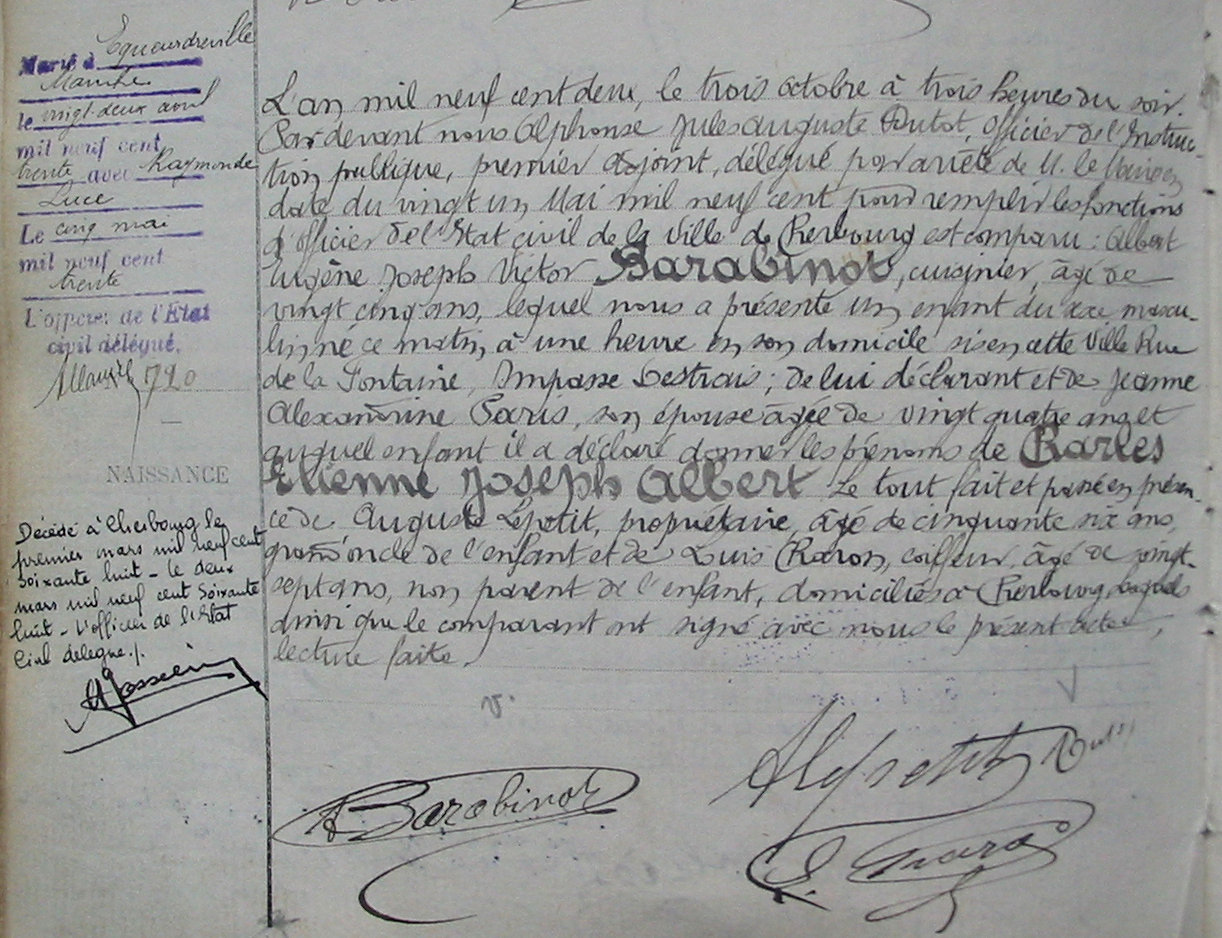 Marié à Equeurdreville
Manche
le vingt-deux avril
mil neuf cent
trente avec Raymonde
Luce
Le cinq mai
mil neuf cent
trente
L'officier de l'Etat
civil délégué.
720
NAISSANCE
Décédé à Cherbourg le
premier mars mil neuf cent
soixante huit - le deux
mars mil neuf cent soixante
huit - L'officier de l'Etat
Civil délégué./.
L'an mil neuf cent deux, le trois octobre à trois heures du soir.
Par devant nous Alphonse Jules Auguste Dutot, officier de l'Instruc-
tion publique, premier adjoint, délégué par arrêté de M. le Maire en
date du vingt un Mai mil neuf cent pour remplir les fonctions
d'officier de l'Etat civil de la Ville de Cherbourg est comparu : Albert
Eugène Joseph Victor Barabinot, cuisinier, âgé de
vingt cinq ans, lequel nous a présenté un enfant du sexe mascu-
lin, né ce matin, à une heure en son domicile sis en cette Ville Rue
de la Fontaine, Impasse Lestrais ; de lui déclarant et de Jeanne
Alexandrine Paris, son épouse âgée de vingt quatre ans et
auquel enfant il a déclaré donner les prénoms de Charles
Etienne Joseph Albert Le tout fait et passé en présen-
ce de Auguste Lepetit, propriétaire, âgé de cinquante six ans,
grand'oncle de l'enfant et de Louis Charon, coiffeur, âgé de vingt-
sept ans, non parent de l'enfant, domiciliés à Cherbourg, lesquels
ainsi que le comparant ont signé avec nous le présent acte,
lecture faite.
v.
A Barabinot
A Lepetit